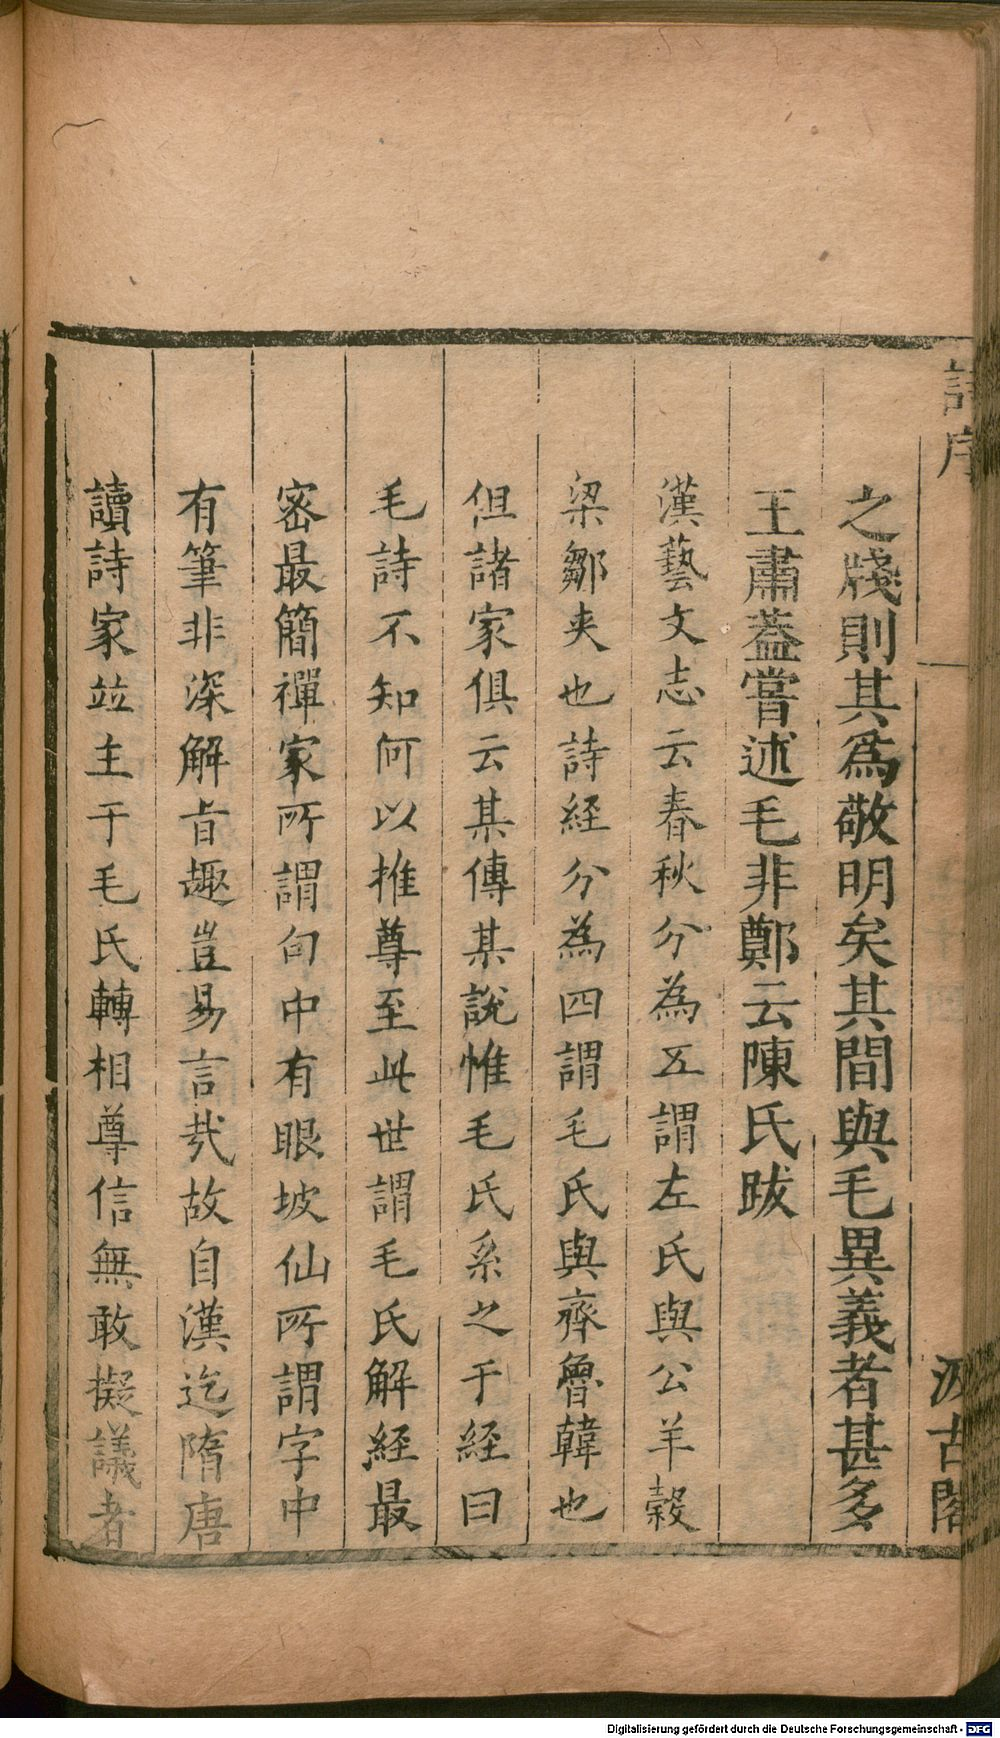 詩序
一
汲古閣
之牋則其爲敬明矣其間與毛異義者甚多
王肅葢嘗述毛非鄭云陳氏跋
漢藝文志云春秋分為五謂左氏與公羊穀
梁鄒夾也詩經分為四謂毛氏與齊魯韓也
但諸家俱云某傳某說惟毛氏系之于經曰
毛詩不知何以推尊至此世謂毛氏解經最
密最簡禪家所謂句中有眼坡仙所謂字中
有筆非深解旨趣豈易言哉故自漢迄隋唐
讀詩家竝主于毛氏轉相尊信無敢擬議者
Digitalisierung gefördert durch die Deutsche Forschungsgemeinschaft - DFG